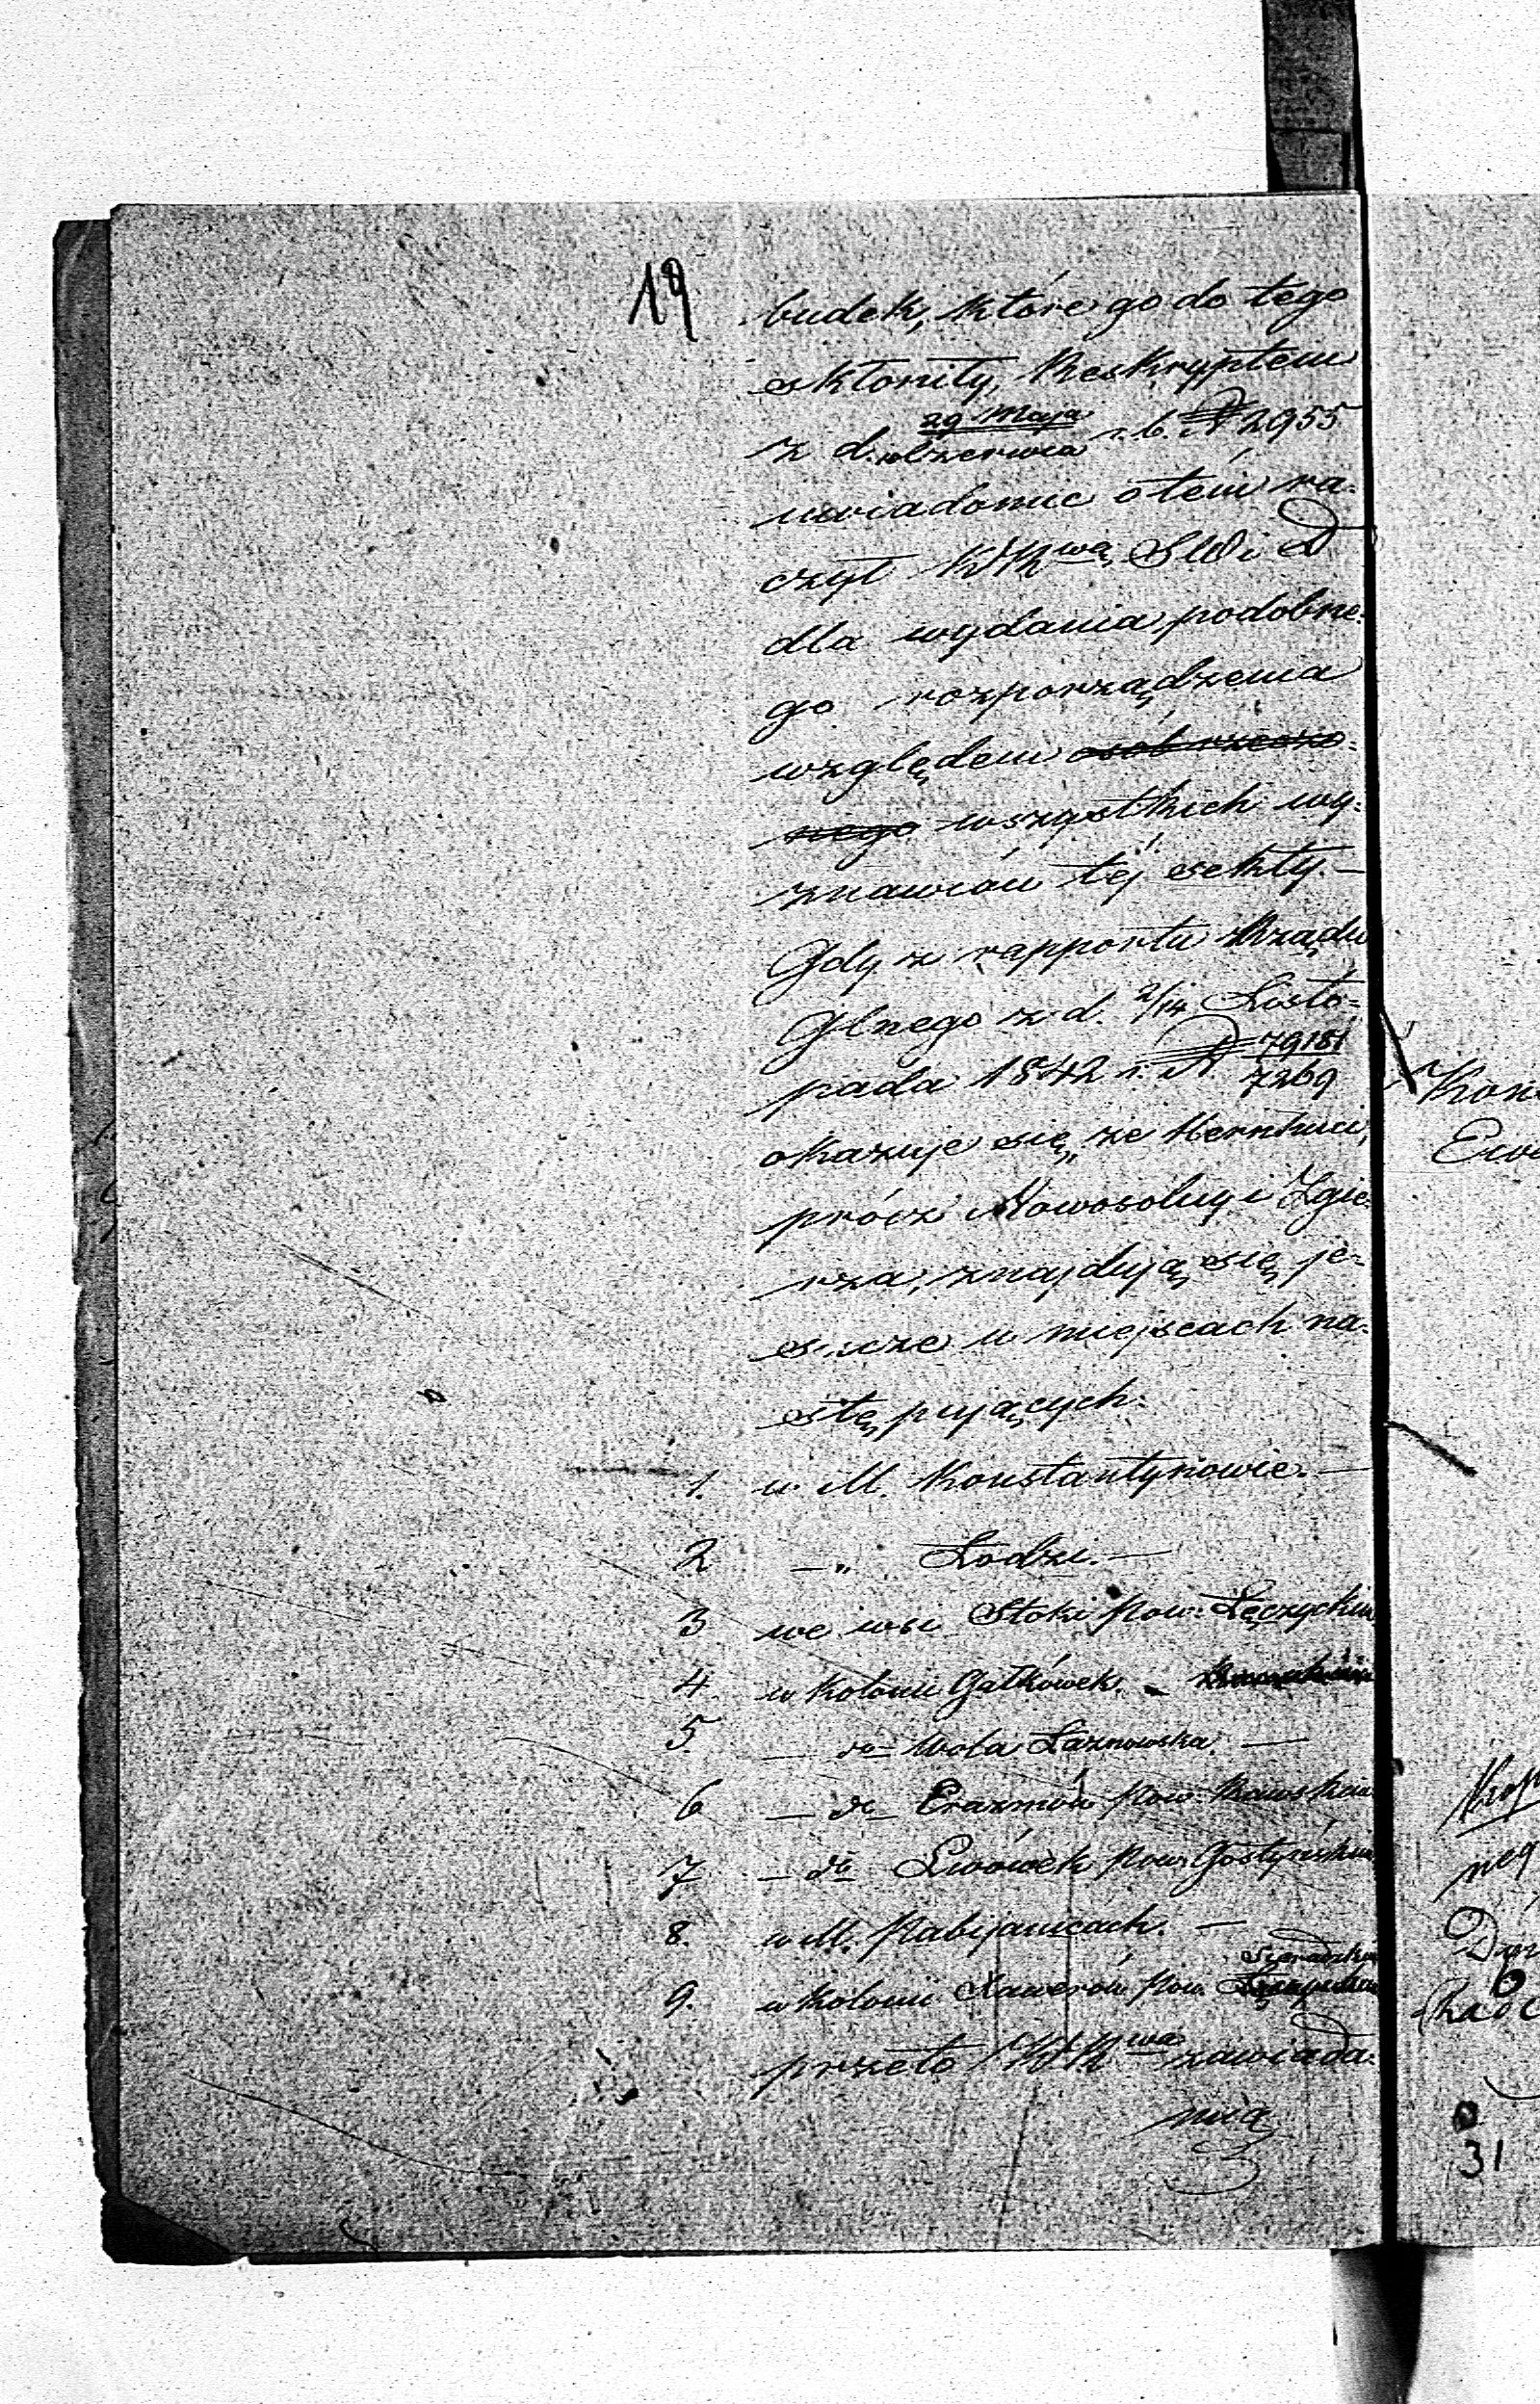 19
budek, które go do tego
skłoniły, Reskryptem
29 Maja
z d. 10 Czerwca r. b. № 2955
uwiadomić o tém ra-
czył KRK wą SW i D
dla wydania podobne-
go rozporządzenia
względem osób rzeczo-
nego wszystkich wy-
znawców téj sekty.—
Gdy z rapportu Rządu
Glnego z d. 2/14 Listo-
pada 1842 r. № 79181/7269
okazuje się, że Hernhuci,
prócz Nowosolny i Zgie-
rza, znajdują się je-
szcze w miejscach na-
stępujących:
1. w M. Konstantynowie.—
2 —„ Łodzi.—
3 we wsi Stoki Pow: Łęczyckim
4 w kolonii Gałkówek. —
5. — do Wola Łaznowska. —
6 — do Erazmów Pow. Rawskim
7 — do Lwówek Pow. Gostyńskim
8. w M. Pabijanicach. —
Szeradzkim
9. w kolonii Xawerów Pow. Łęczyckim
przeto KRK wa zawiada-
mia
Kon
Ewa
neg
31